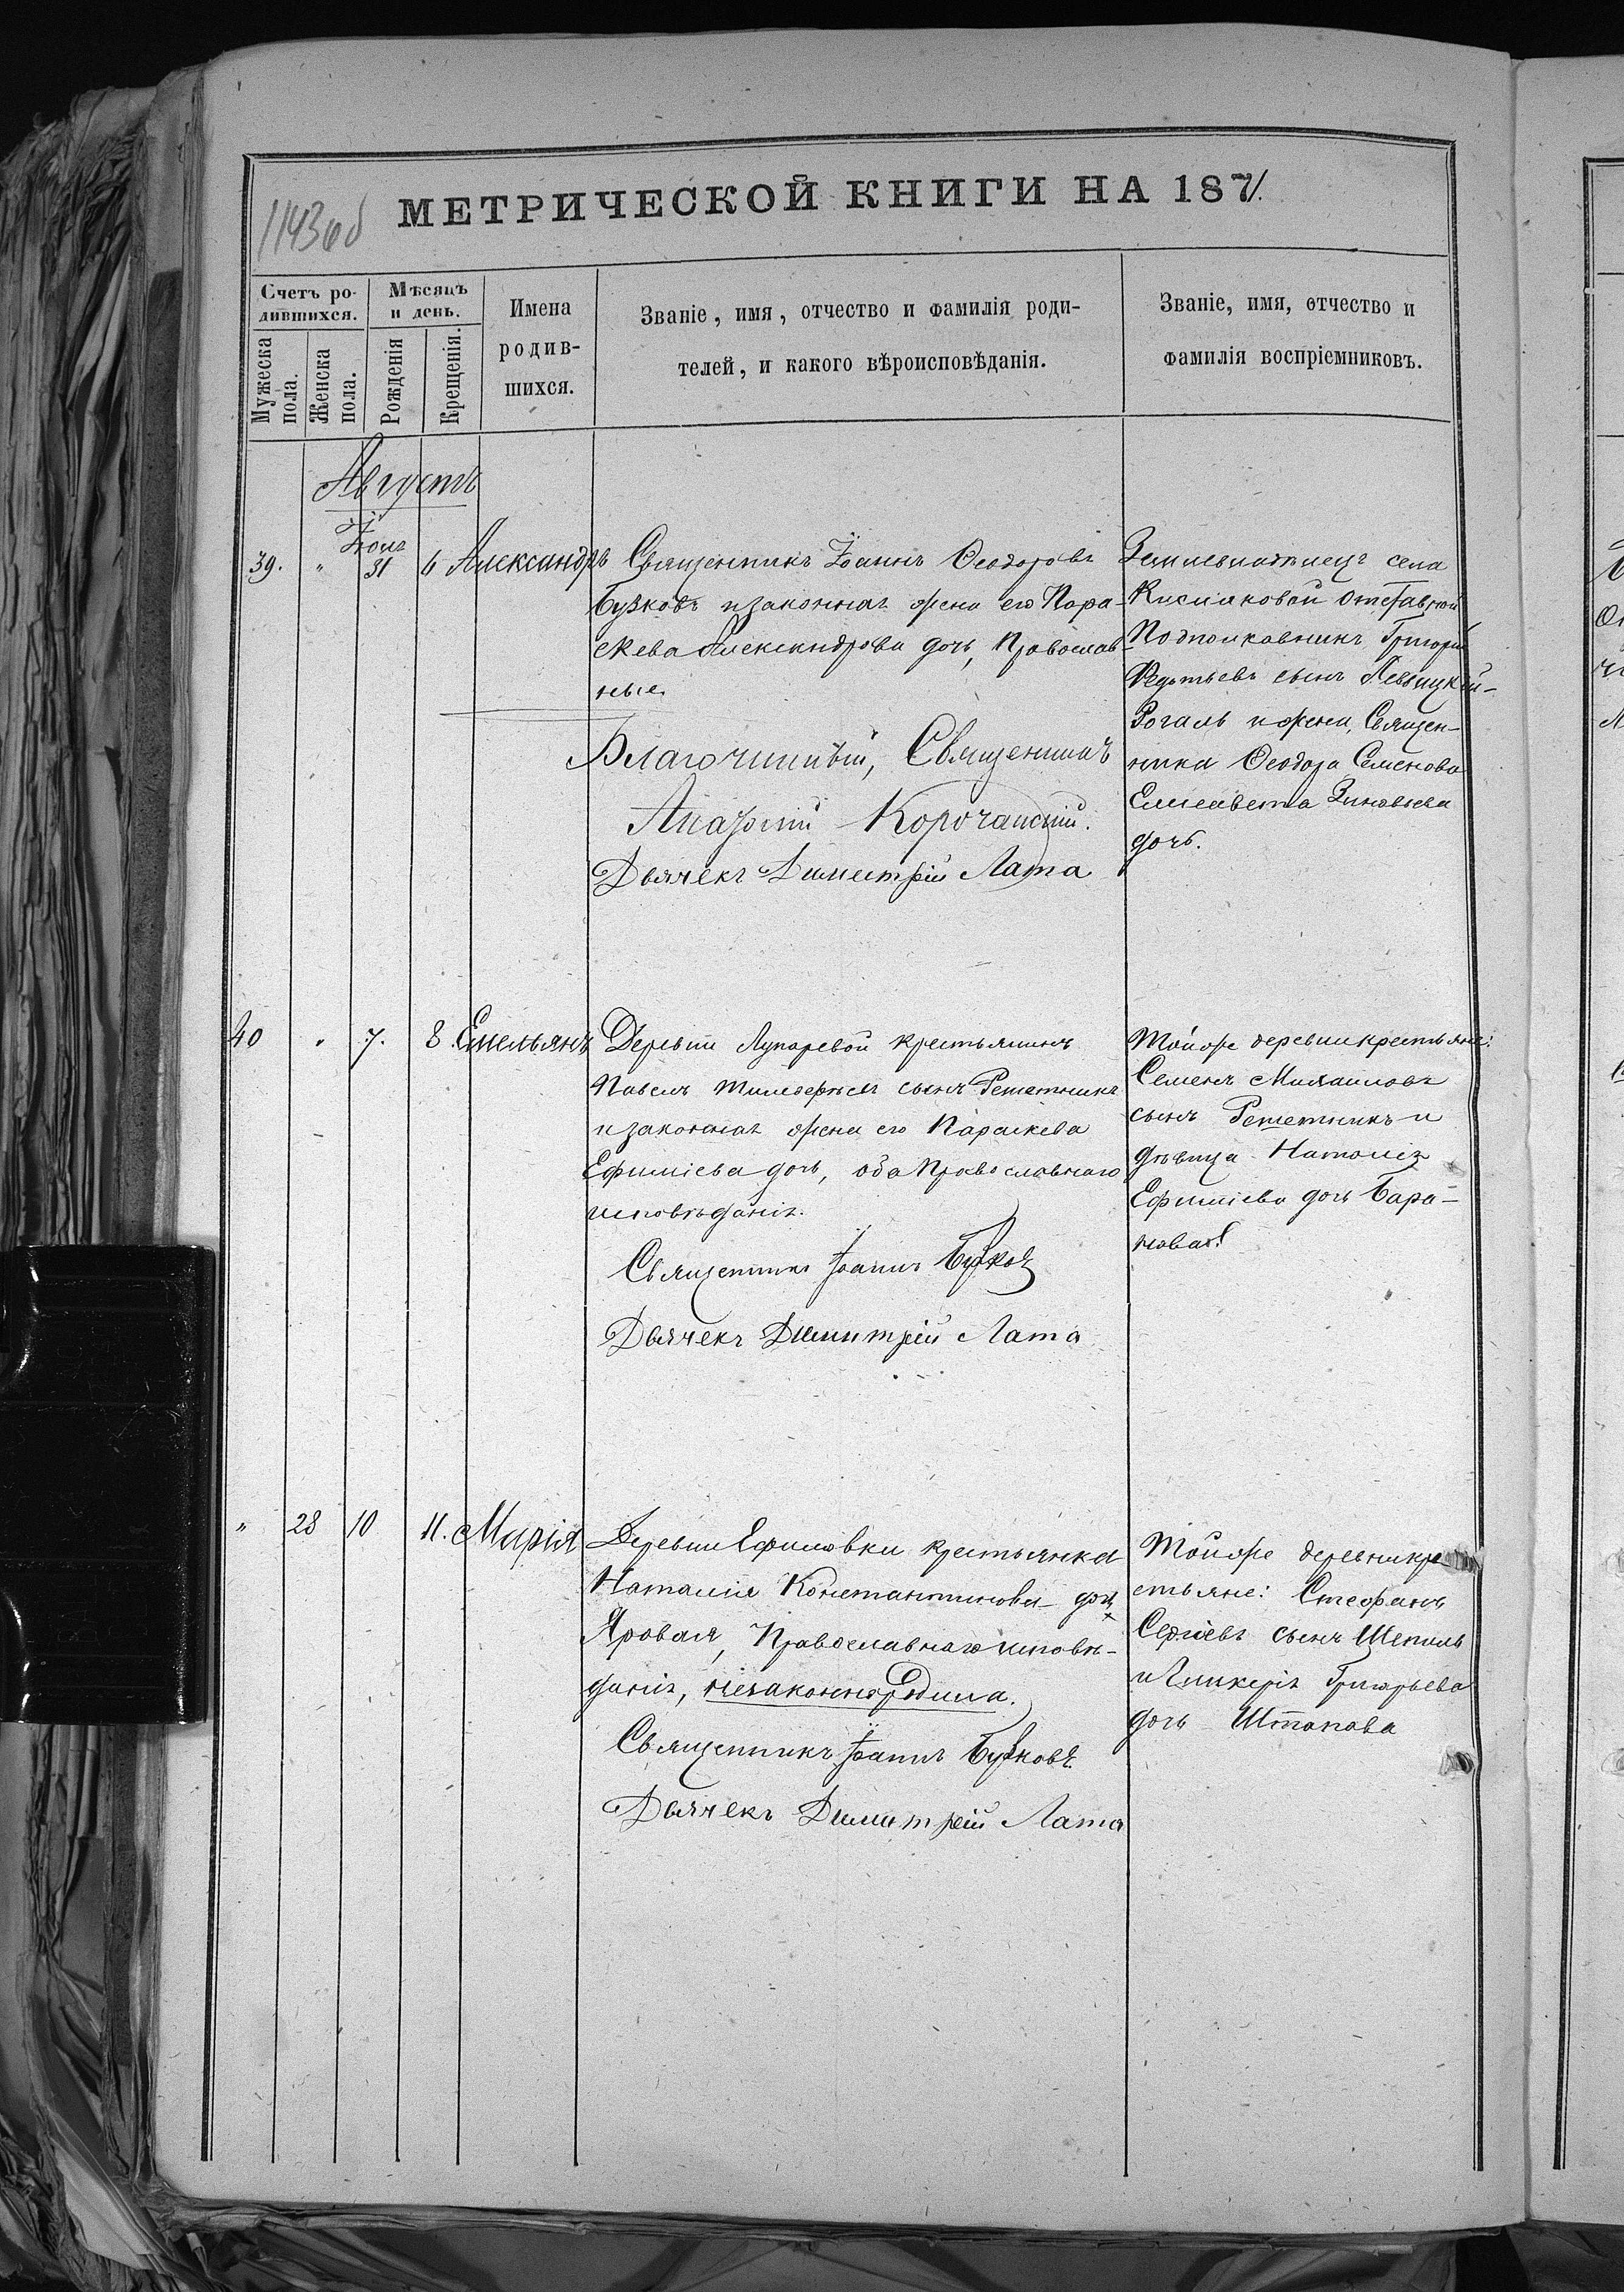 1143об
МЕТРИЧЕСКОЙ КНИГИ НА 1871.
Счетъ ро-
дившихся.
Мѣсяцъ
и день.
Мужеска
пола.
Женска
пола.
Рожденія
Крещенія.
Имена
родив-
шихся.
Званіе, имя, отчество и фамилія роди-
телей, и какого вѣроисповѣданія.
Званіе, имя, отчество и
фамилія воспріемниковъ.
Августъ
39. " 31 6 Александръ
Священникъ Іоаннъ Ѳеодоровъ
Бузковъ и законная жена его Пара-
скева Александрова дочь, Православ-
ные.
Благочинный, Священникъ
Корочанскій.
Дьячекъ Димитрій Лата
села
Кисляковой отставной
Подполковникъ Григорій
сынъ Левыцкій-
Рогаль и жена Священ-
ника Ѳеодора Семенова
Елисавета Зиновьева
дочь.
40 " 7. 8. Емельянъ
Деревни Лупаревой крестьянинъ
Павелъ сынъ Решетникъ
и законная жена его Параскева
Ефиміева дочь, оба Православнаго
исповѣданія.
Священникъ Іоаннъ Бузковъ
Дьячекъ Димитрій Лата
Тойже деревни крестьяне:
Семенъ Михаиловъ
сынъ Решетникъ и
дѣвица Наталія
Ефиміева дочь Бара-
новая
" 28 10 11. Марія
Деревни Ефимовки крестьянка
Наталія Константинова дочь
Яровая, Православнаго исповѣ-
данія, незаконно родила.
Священникъ Іоаннъ Бузковъ
Дьячекъ Димитрій Лата
Тойже деревни кре-
стьяне: Стефанъ
Сергіевъ сынъ Шепиль
и Гликерія Григорьева
дочь